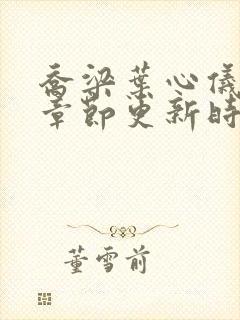 乔梁葉心儀
章節更新時
董雪前